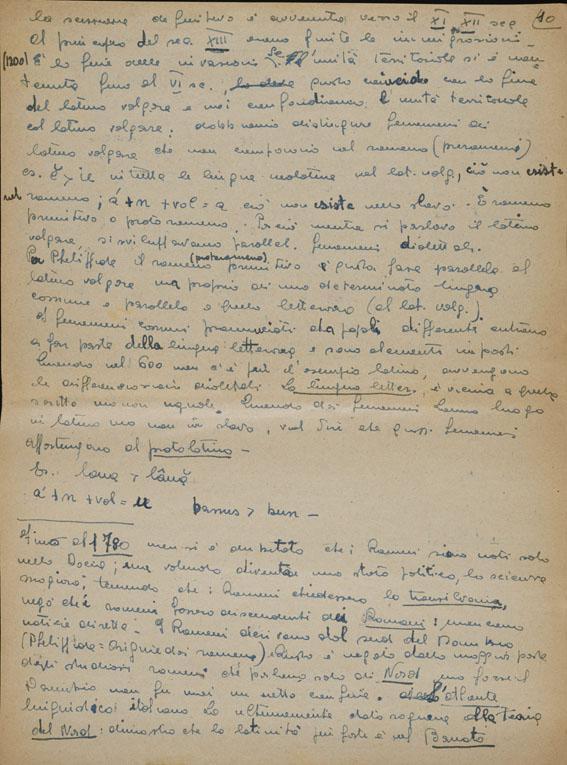 la scissione definitiva è avvenuta verso il XI XII sec 40
Al principio del sec. XIII erano finite le immigrazioni.
(1200) E la fine delle invasioni. Se l'unità territoriale si è man-
tenuta fino al VI sc., questo coincide con la fine
del latino volgare e noi confondiamo l'unità territoriale
col latino volgare. dobbiamo distinguere fenomeni di
latino volgare che non compaiono nel romeno
es. in tutte le lingue nel lat. volg., ciò non esiste
nel romeno; á+n+vol = a ciò non esiste nello slavo. È romeno
primitivo o proto romeno. Perciò mentre si parlava il latino
volgare, si sviluppavano parallel. fenomeni dialettali.
Per Philippide il romeno (protoromeno) primitivo è questa fase parallela al
latino volgare ma proprio di una determinata lingua
comune e parallelo a quello letterario (al lat. volg.).
I fenomeni comuni pronunciati da popoli differenti entrano
a far parte della lingua letteraria e sono elementi imposti
Quando nel 600 non c'è più l'esempio latino, avvengono
le differenziazioni dialettali. La lingua letter. è vicina a quella
scritta ma non uguale. Quando dei fenomeni hanno luogo
in latino ma non in slavo, vuol dire che questi fenomeni
appartengono al protolatino -
Es. lana > lână
á+n+vol = u bonus > bun -
Fino al 1780 non si è dubitato che i Rumeni siano nati solo
nella Dacia; ma volendo diventar uno stato politico, la scienza
magiara, temendo che i Rumeni chiedessero la transilvania,
negò che i romeni fossero discendenti dei Romani: mancano
notizie dirette. I Rumeni derivano dal sud del Danubio
(Philippide = Originea romanilor) Questo è negato dalla maggior parte
degli studiosi romeni che parlano solo di Nord ma forse il
Danubio non fu mai un netto confine. l'atlante
linguistico italiano ha ultimamente dato ragione alla teoria
del Nord: dimostra che la latinità più forte è nel Banato